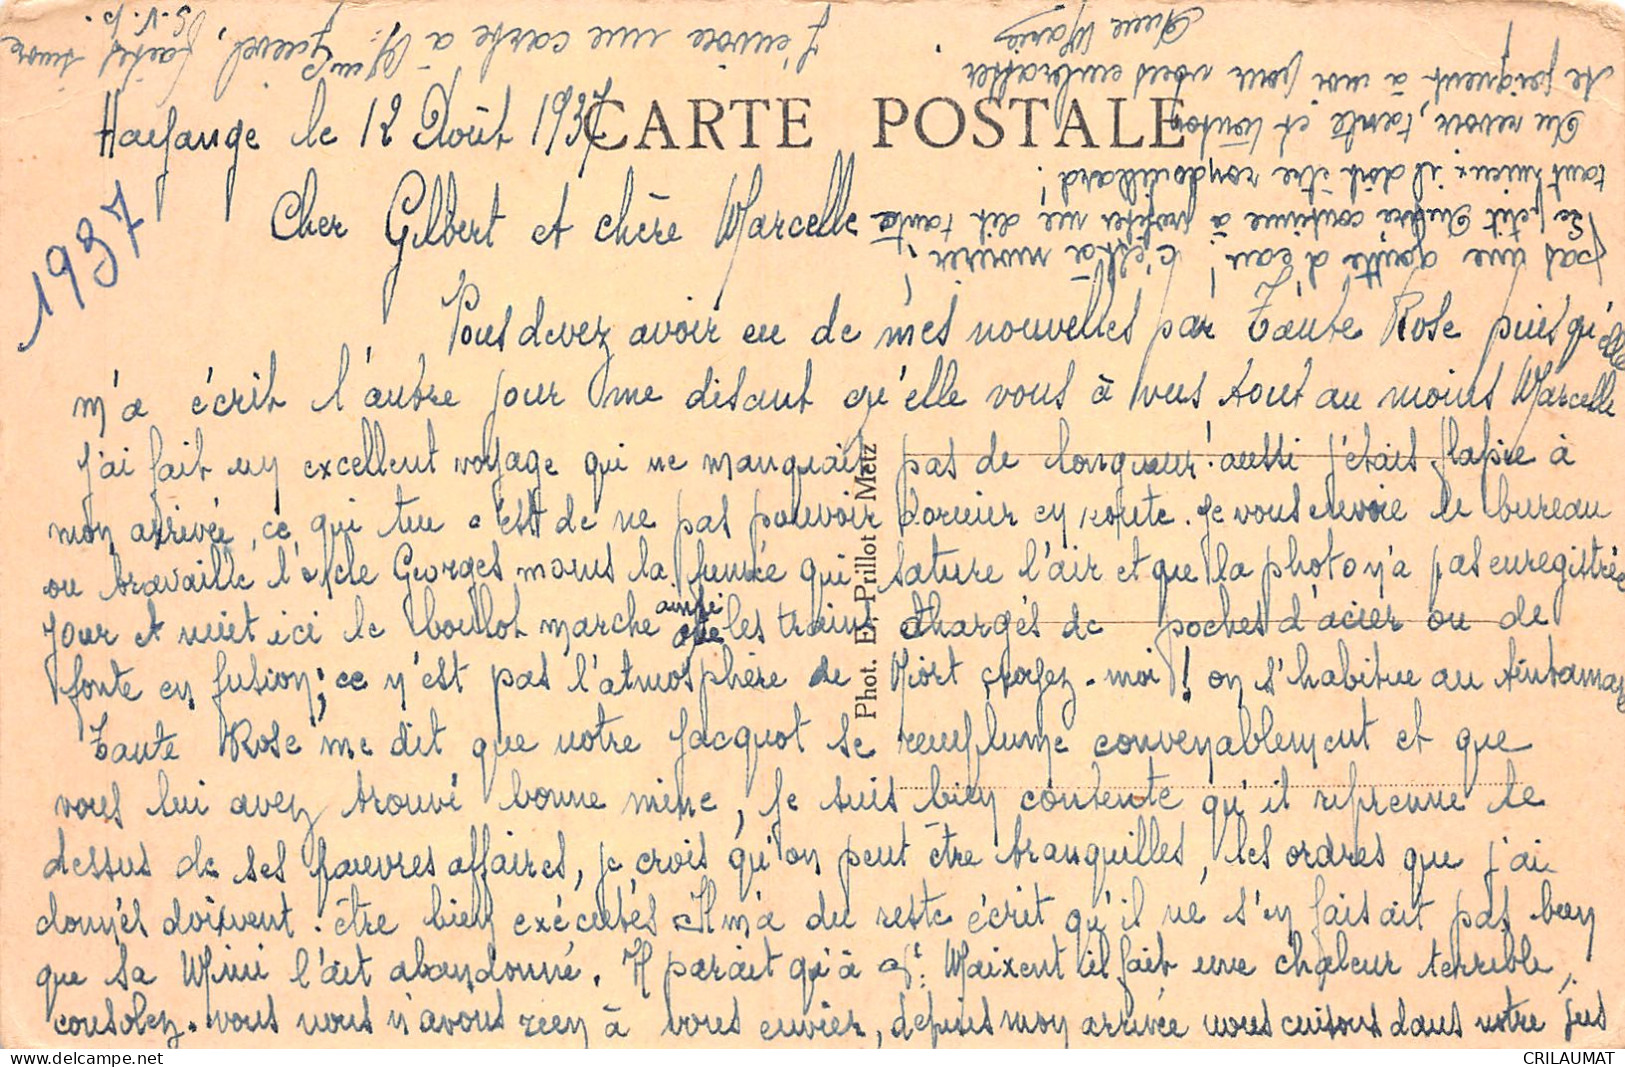 CARTE POSTALE
Hayange le 12 Août 1937
1937
Cher Gilbert et chère Marcelle
Vous devez avoir eu de mes nouvelles par Tante Rose puisqu'elle
m'a écrit l'autre jour me disant qu'elle vous à vus tout au moins Marcelle
J'ai fait un excellent voyage qui ne manquait pas de longueur! aussi j'étais flapie à
mon arrivée, ce qui tue c'est de ne pas pouvoir dormir en route. Je vous envoie le bureau
ou travaille l'oncle Georges moins la fumée qui sature l'air et que la photo n'a pas enregistrée
Jour et nuit ici le boulot marche ainsi que les trains chargés de poches d'acier ou de
fonte en fusion; ce n'est pas l'atmosphère de Niort croyez-moi! on s'habitue au tintamare
Tante Rose me dit que votre Jacquot se remplume convenablement et que
vous lui avez trouvé bonne mine, je suis bien contente qu'il reprenne le
dessus de ses pauvres affaires, je crois qu'on peut être tranquilles, les ordres que j'ai
donnés doivent être bien exécutés Il m'a du reste écrit qu'il ne s'en faisait pas bien
que sa Mimi l'ait abandonné. Il parait qu'à St Maixent il fait une chaleur terrible,
consolez-vous nous n'avons rien à vous envier, depuis mon arrivée nous cuisons dans notre jus
pas une goutte d'eau! c'est à mourir!
Le petit André continue à profiter me dit tante
tant mieux il doit être rondouillard!
Au revoir, tante et tonton
se joignent à moi pour vous embrasser
Anne Marie
J'envoie une carte à Mme Guevel, faites suivre
S.V.P.
Phot. E. Prillot Metz
CRILAUMAT